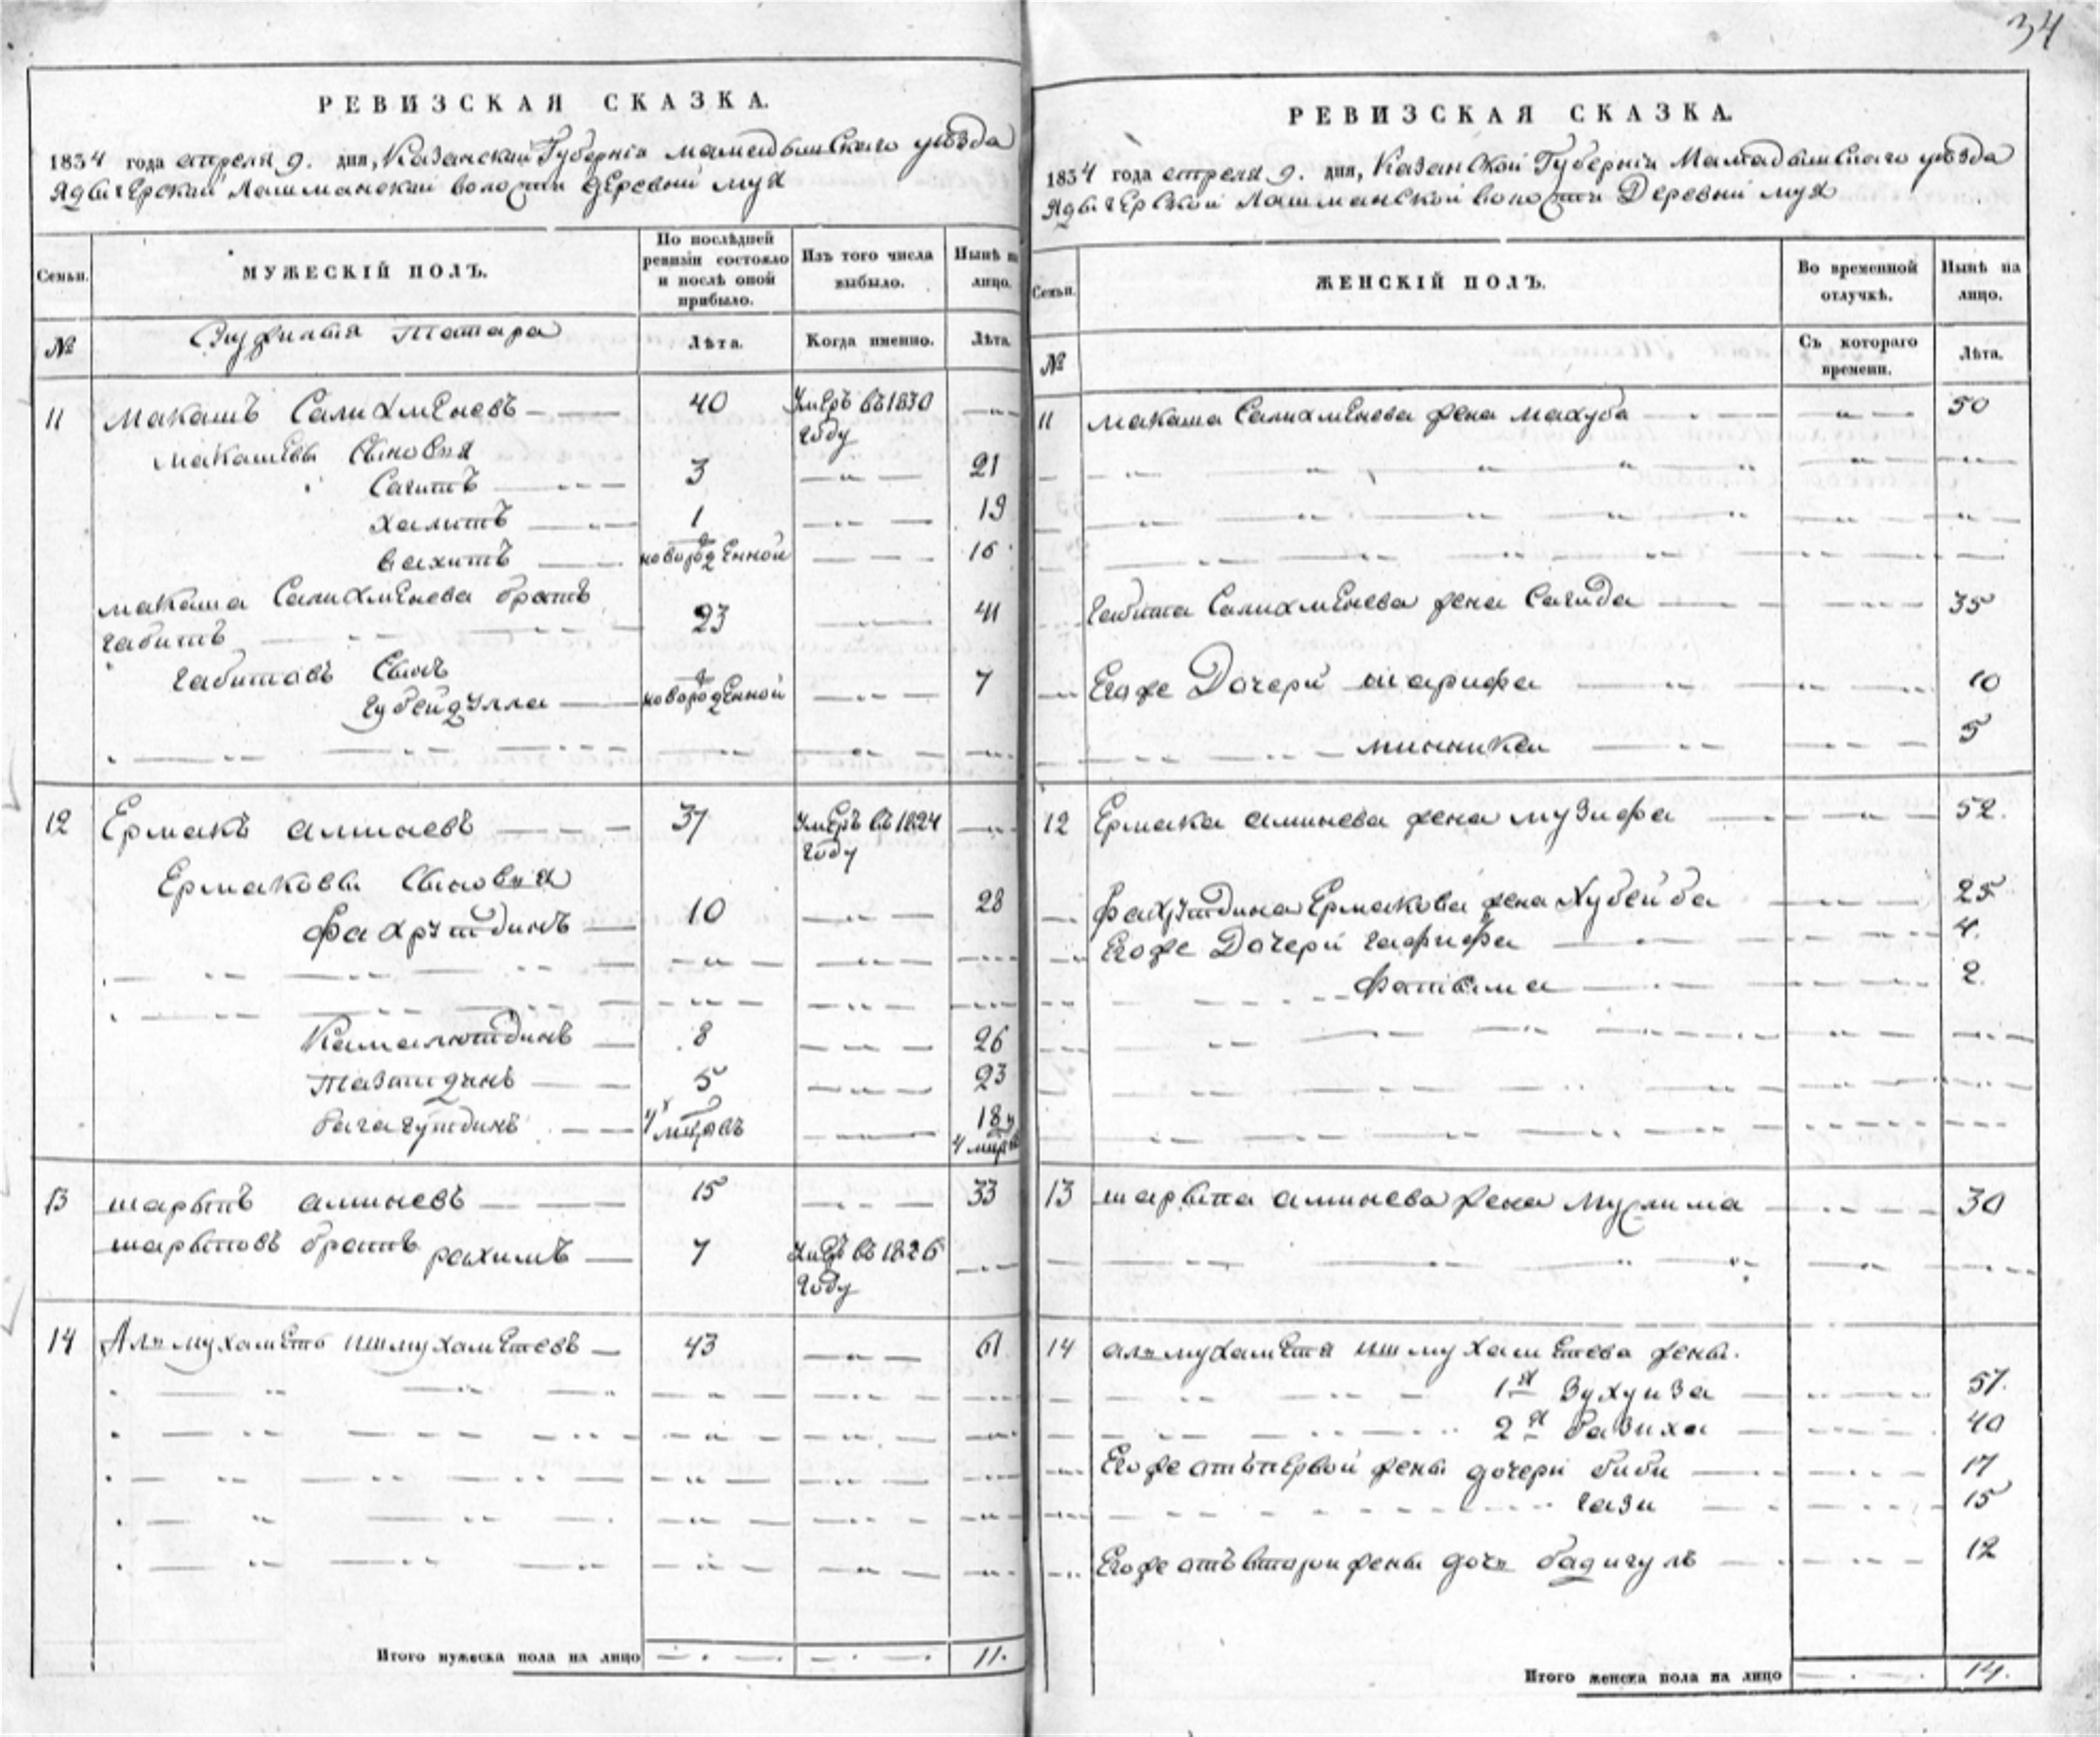 34
РЕВИЗСКАЯ СКАЗКА.
1834 года апреля 9. дня, Казанской Губернiи мамадышскаго уѣзда
Ядыгерской Лашманской волости деревни муя
Семьи. МУЖЕСКIЙ ПОЛЪ. По послѣдней ревизiи состояло и послѣ оной прибыло. Изъ того числа выбыло. Нынѣ на лицо.
№ татара Лѣта. Когда именно. Лѣта.
11 Макашъ Салихменевъ 40 Умеръ въ 1830 году
Макашевы Сыновья
Сагитъ 3 21
Халитъ 1 19
Вахитъ новорожденной 16
Макаша Салихменева братъ
Габитъ 23 41
Габитовъ Сынъ
Губейдулла новорожденной 7
12 Ермакъ аминевъ 37 Умеръ въ 1824 году
Ермаковы Сыновья
Фахрутдинъ 10 28
Камалютдинъ 8 26
Тазтидинъ 5 23
Багаутдинъ 4 18
13 шарыпъ аминевъ 15 33
шарыповъ братъ рахимъ 7 Умеръ въ 1826 году
14 Альмухаметь ишмухаметевъ 43 61
Итого мужеска пола на лицо 11.
РЕВИЗСКАЯ СКАЗКА.
1834 года апреля 9. дня, Казанской Губернiи Мамадышскаго уѣзда
Ядыгерской Лашманской волости Деревни муя
Семьи. ЖЕНСКIЙ ПОЛЪ. Во временной отлучкѣ. Нынѣ на лицо.
№ Съ котораго времени. Лѣта.
11 Макаша Салихменева жена махуба 50
Габита Салихменева жена Сагида 35
Егоже Дочери шарифа 10
минника 5
12 Ермака аминева жена музифа 52.
Фахрутдина Ермакова жена Хубейба 25
Егоже Дочери гафифа 4.
Фатыма 2.
13 шарыпа аминева жена Муслима 30
14 альмухаметя ишмухаметева жены.
1я Зухуиза 57.
2я базиха 40
Егоже отъ первой жены дочери биби 17
гази 15
Егоже отъ второй жены дочь бадигулъ 12
Итого женска пола на лицо 14.